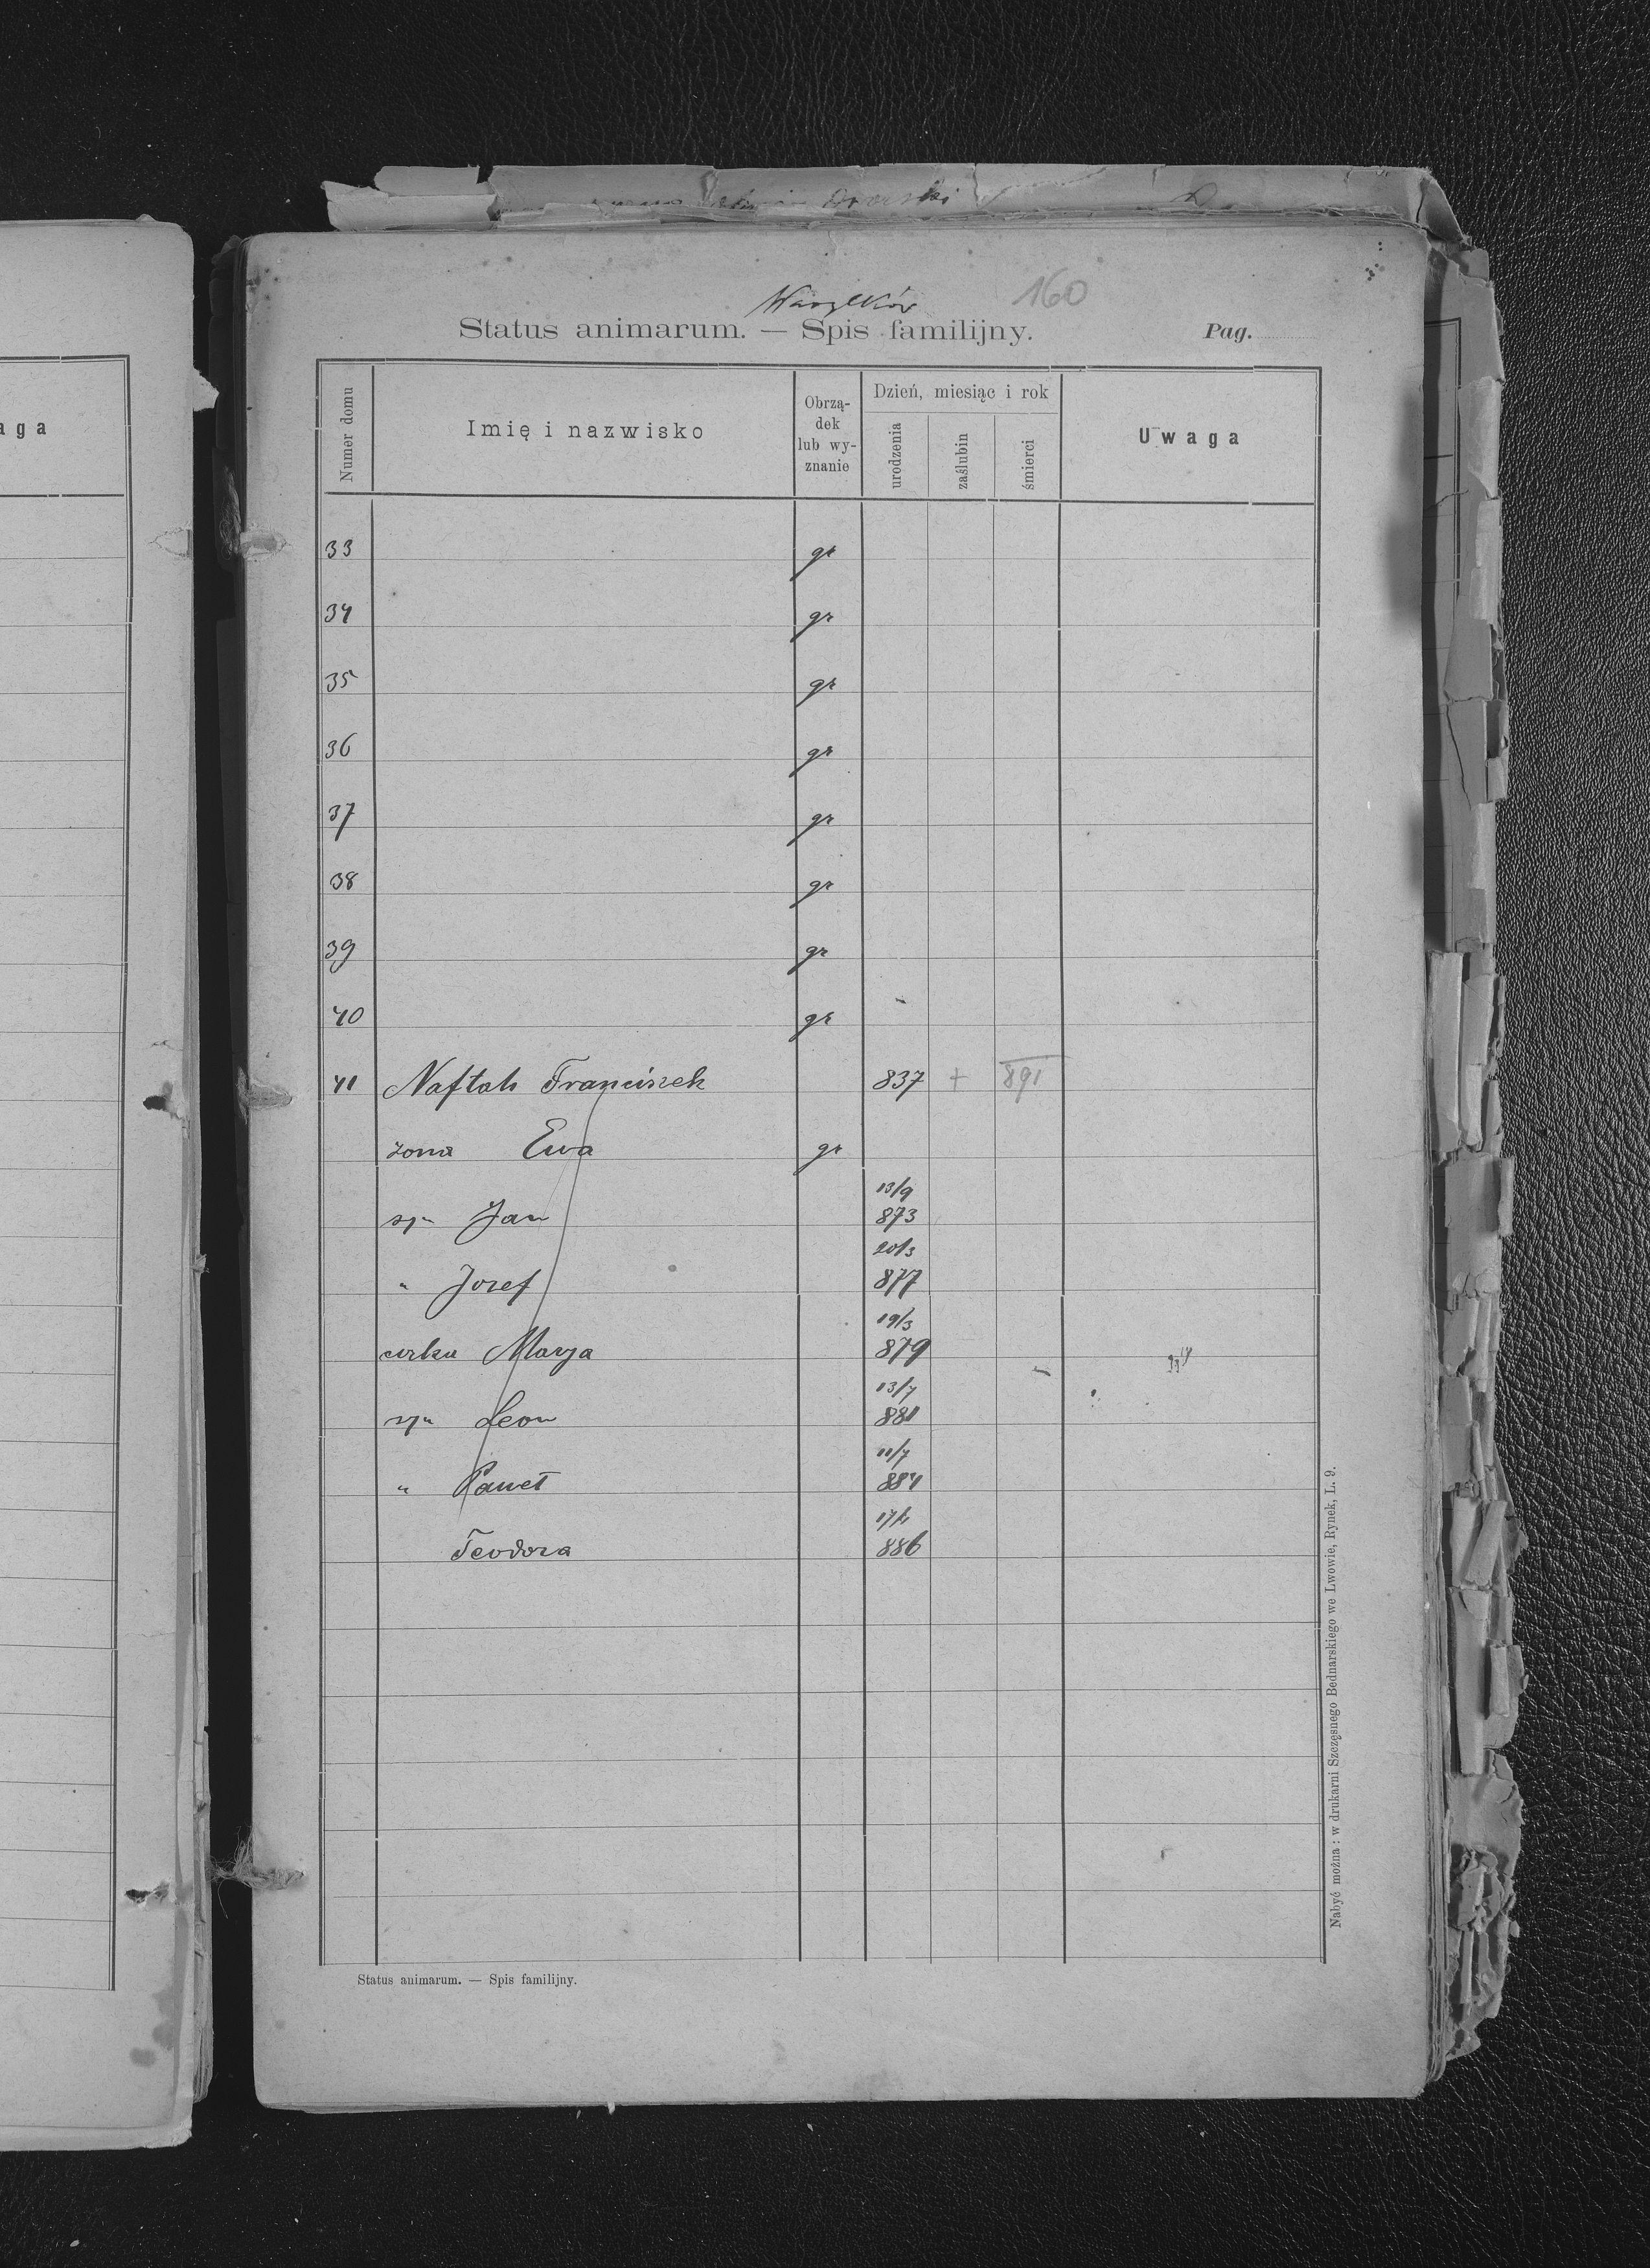 aga
Waszlków 160
Status animarum. — Spis familijny. Pag.
Numer domu
Imię i nazwisko
Obrzą-
dek
lub wy-
znanie
Dzień, miesiąc i rok
urodzenia
zaślubin
śmierci
Uwaga
33 gr
34 gr
35 gr
36 gr
37 gr
38 gr
39 gr
40 gr
41 Naftah Franciszek 837 + 891
żona Ewa gr
13/9
syn Jan 873
20/3
" Jozef 877
19/3
curka Marya 879
13/7
syn Leon 881
11/7
" Paweł 884
Teodora 886
Status animarum. — Spis familijny.
Nabyć można: w drukarni Szczęsnego Bednarskiego we Lwowie, Rynek, L. 9.